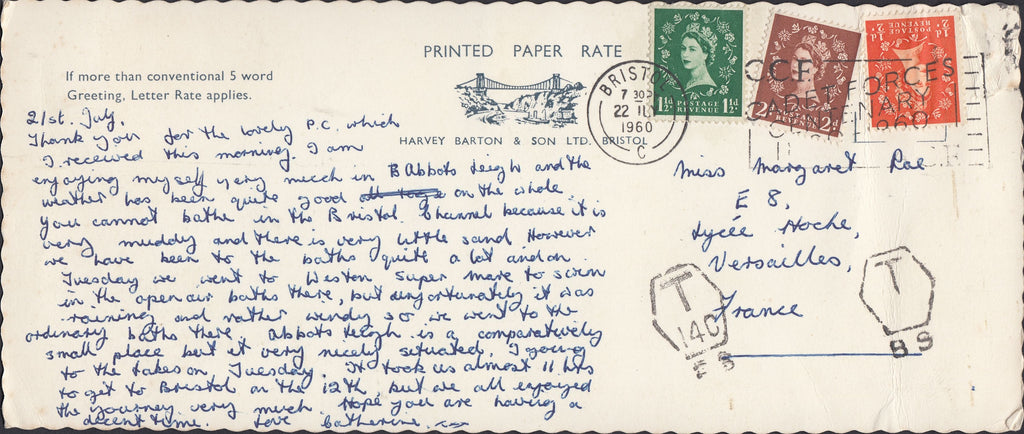 PRINTED PAPER RATE
If more than conventional 5 word
Greeting, Letter Rate applies.
HARVEY BARTON & SON LTD. BRISTOL
21st. July,
Thank you for the lovely P.C. which
I received this morning. I am
enjoying myself very much in B Abbots Leigh and the
weather has been quite good on the whole.
You cannot bathe in the Bristol Channel because it is
very muddy and there is very little sand However
we have been to the baths quite a lot and on
Tuesday we went to Weston Super Mare to swim
in the open air baths there, but unfortunately it was
raining and rather windy so we went to the
ordinary baths there. Abbots Leigh is a comparatively
small place but it very nicely situated. I going
to the takes on Tuesday. It took us almost 11 hrs
to get to Bristol on the 12th but we all enjoyed
the journey very much. Hope you are having a
decent time. Love Catherine
Miss Margaret Rae
E 8,
Lycée Hoche,
Versailles,
France
BRISTOL
7 30 P
22 JU
1960
C
C.C.F.
CADET FORCES
CENTENARY
1960
1½D POSTAGE REVENUE 1½D
2D POSTAGE REVENUE 2D
½D POSTAGE REVENUE ½D
T
14C
T
BS